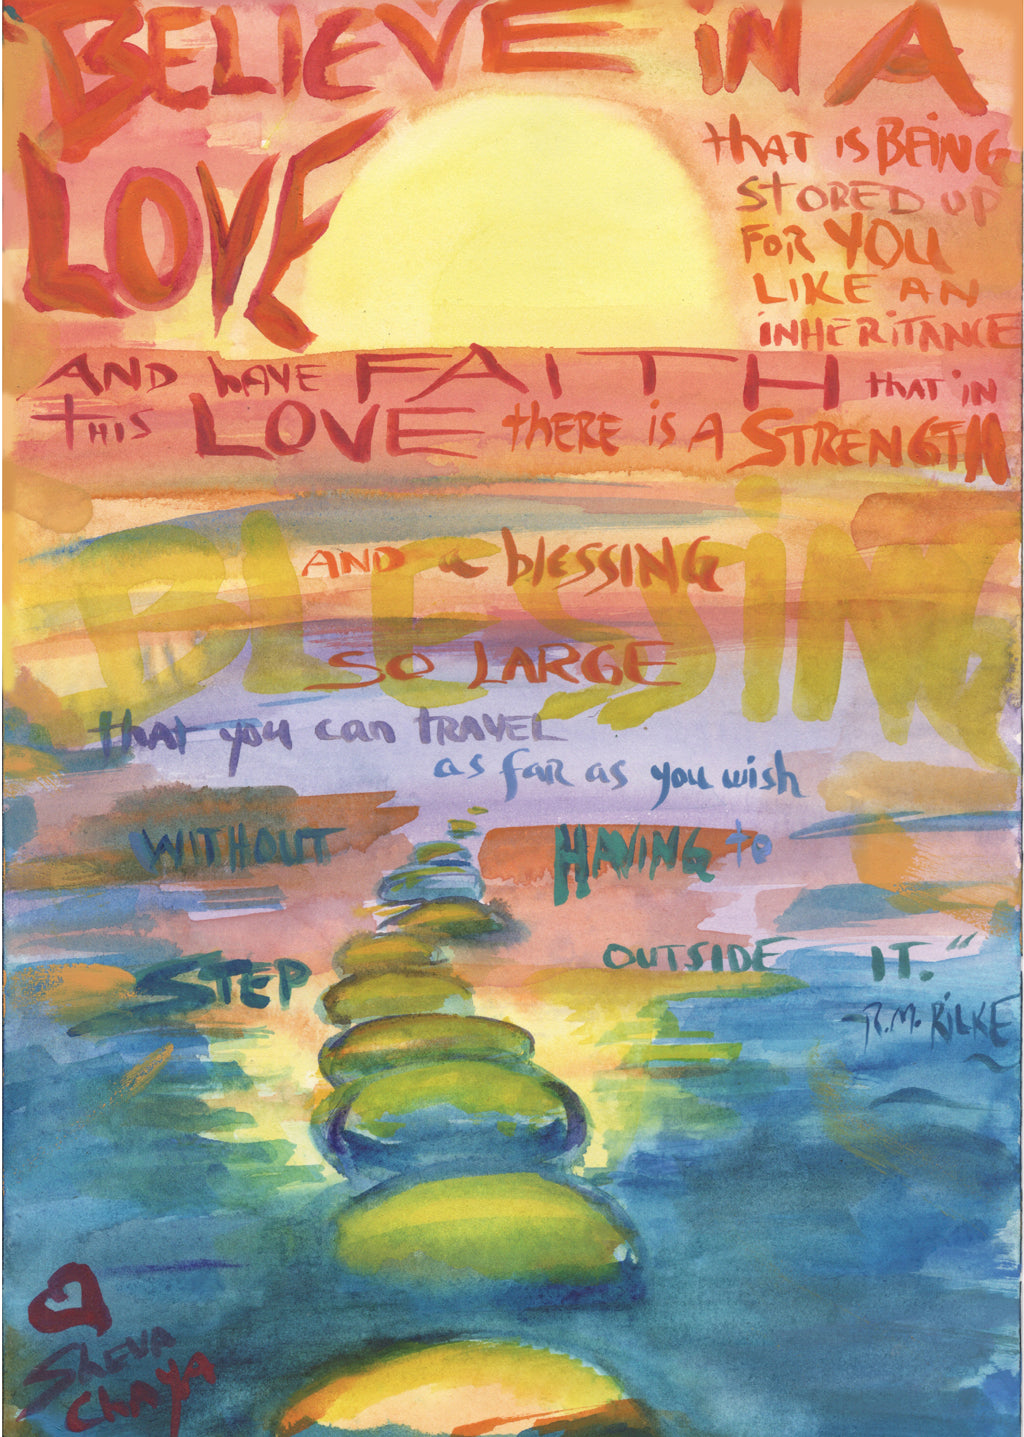 BELIEVE IN A
LOVE
that is BEING
STORED UP
FOR YOU
LIKE AN
INHERITANCE
AND hAVE FAITH that in
THIS LOVE thERE is A STRENGTH
BLESSING
AND a blESSING
SO LARGE
that you can TRAVEL
as far as you wish
WITHOUT HAVING to
STEP OUTSIDE IT."
R.M. RILKE
Sheva
Chaya